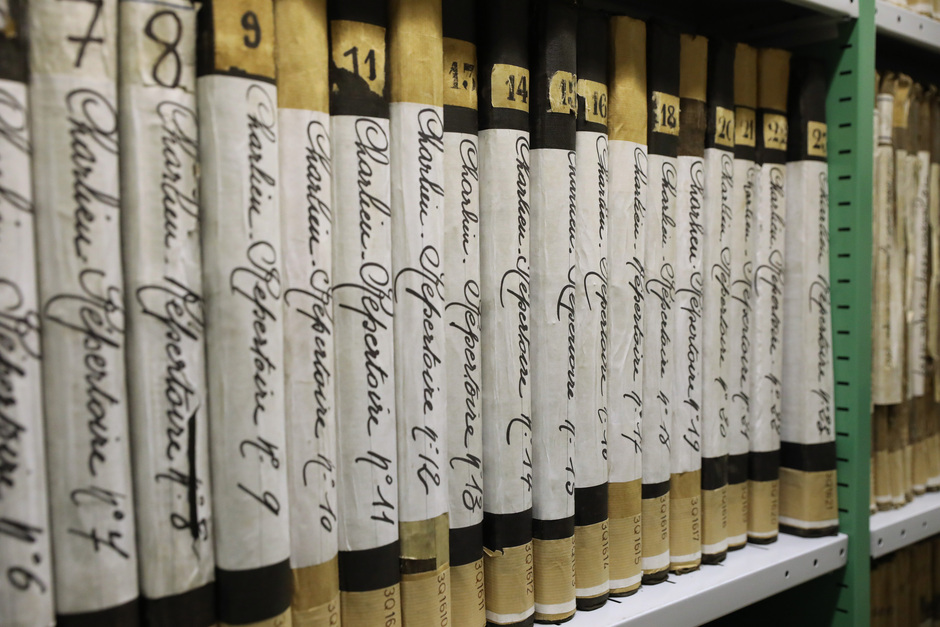 N°6
7
Charlieu Répertoire N°7
8
Charlieu. Répertoire N°8
9
Charlieu. Répertoire N°9
Charlieu. Répertoire N°10
11
Charlieu. Répertoire N°11
Charlieu. Répertoire N°12
13
Charlieu. Répertoire N°13
3Q1611
14
Charlieu. Répertoire N°14
3Q1612
15
Répertoire N°15
16
Charlieu. Répertoire
3Q1614
Charlieu. Répertoire N°17
3Q1615
18
Charlieu. Répertoire N°18
3Q1616
Charlieu Répertoire N°19
3Q1617
20
Charlieu Répertoire N°20
21
Charlieu Répertoire N°21
22
Charlieu Répertoire N°22
23
Charlieu Répertoire N°23